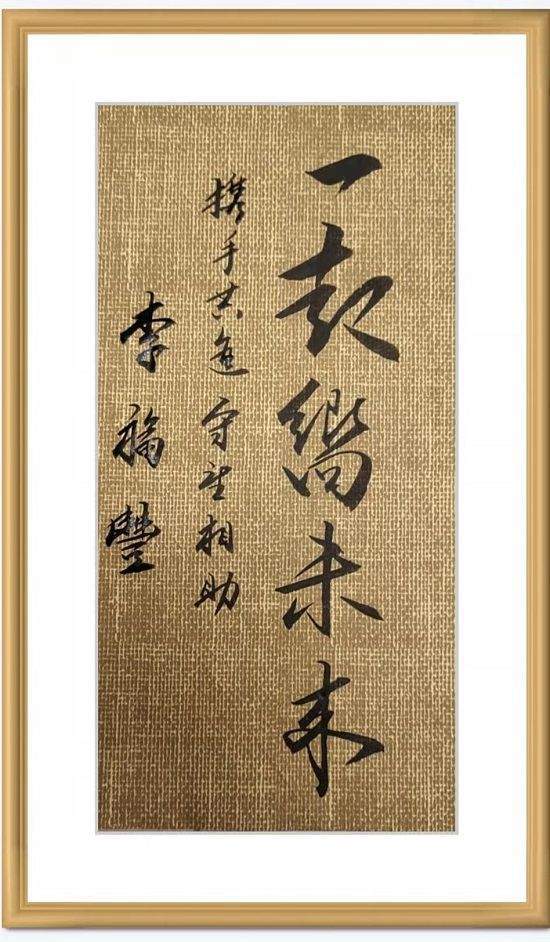 一起嚮未来
携手共進守望相助
李福豐